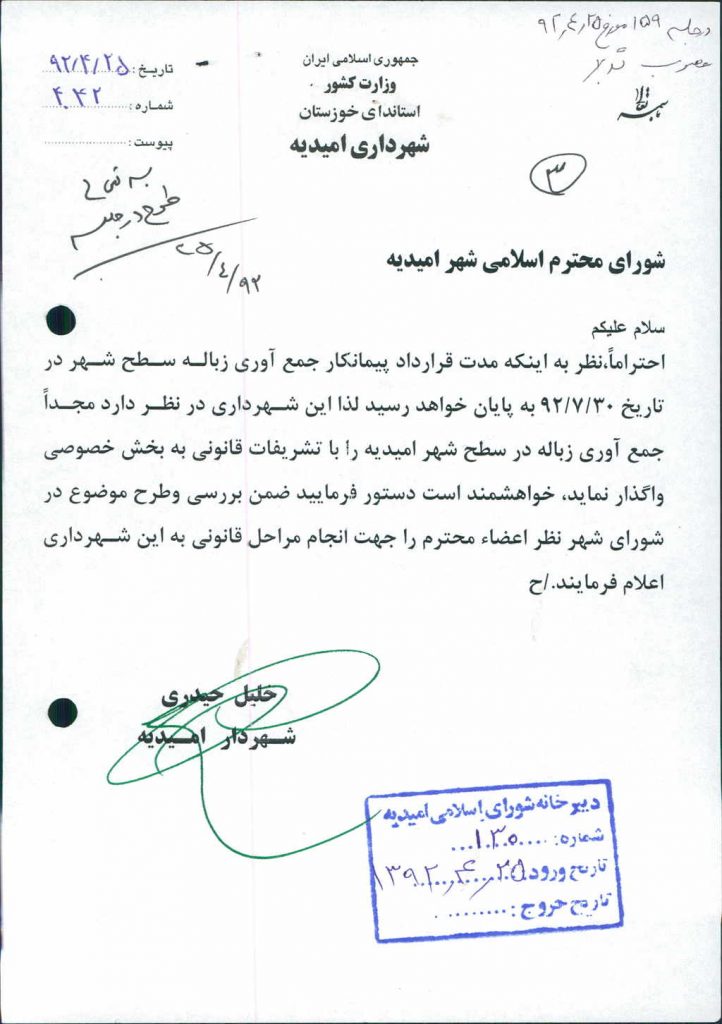 در جلسه ۱۵۹ مورخ ۹۲,۴,۲۵
مصوب گردید
باسمه تعالی
جمهوری اسلامی ایران
وزارت کشور
استاندای خوزستان
شهرداری امیدیه
تاریخ: ۹۲/۴/۲۵
شماره: ۴۰۴۲
پیوست:
طرح در جلسه
۲۵/۴/۹۲
۳
شورای محترم اسلامی شهر امیدیه
سلام علیکم
احتراماً،نظر به اینکه مدت قرارداد پیمانکار جمع آوری زباله سطح شهر در
تاریخ ۹۲/۷/۳۰ به پایان خواهد رسید لذا این شهرداری در نظر دارد مجداً
جمع آوری زباله در سطح شهر امیدیه را با تشریفات قانونی به بخش خصوصی
واگذار نماید، خواهشمند است دستور فرمایید ضمن بررسی وطرح موضوع در
شورای شهر نظر اعضاء محترم را جهت انجام مراحل قانونی به این شهرداری
اعلام فرمایند./ح
خلیل حیدری
شهردار امیدیه
دبیرخانه شورای اسلامی امیدیه
شماره: ۱۳۰
تاریخ ورود ۱۳۹۲,۴,۲۵
تاریخ خروج: